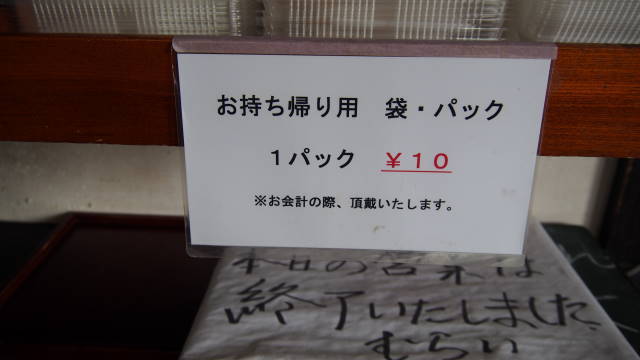 お持ち帰り用 袋・パック
1パック ￥10
※お会計の際、頂戴いたします。
本日の営業は
終了いたしました
むらい